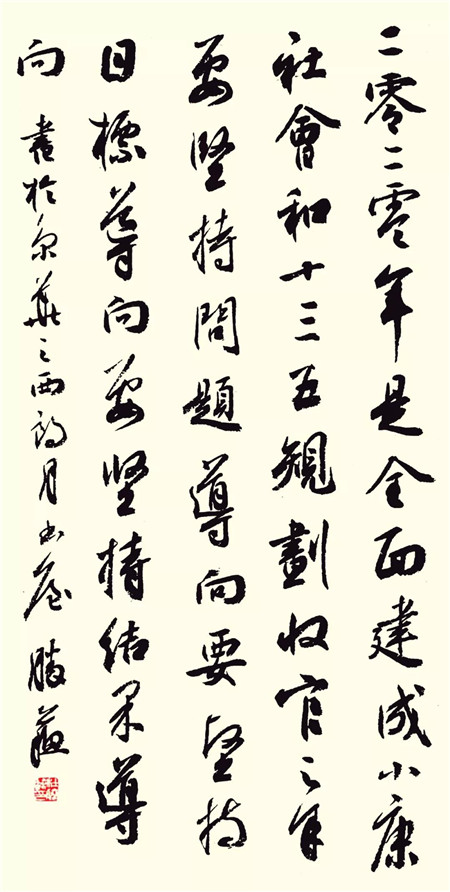 二零二零年是全面建成小康
社會和十三五規劃收官之年
要堅持問題導向要坚持
目標導向要坚持结果導
向 書於京華之西韵月山房 勝蘇